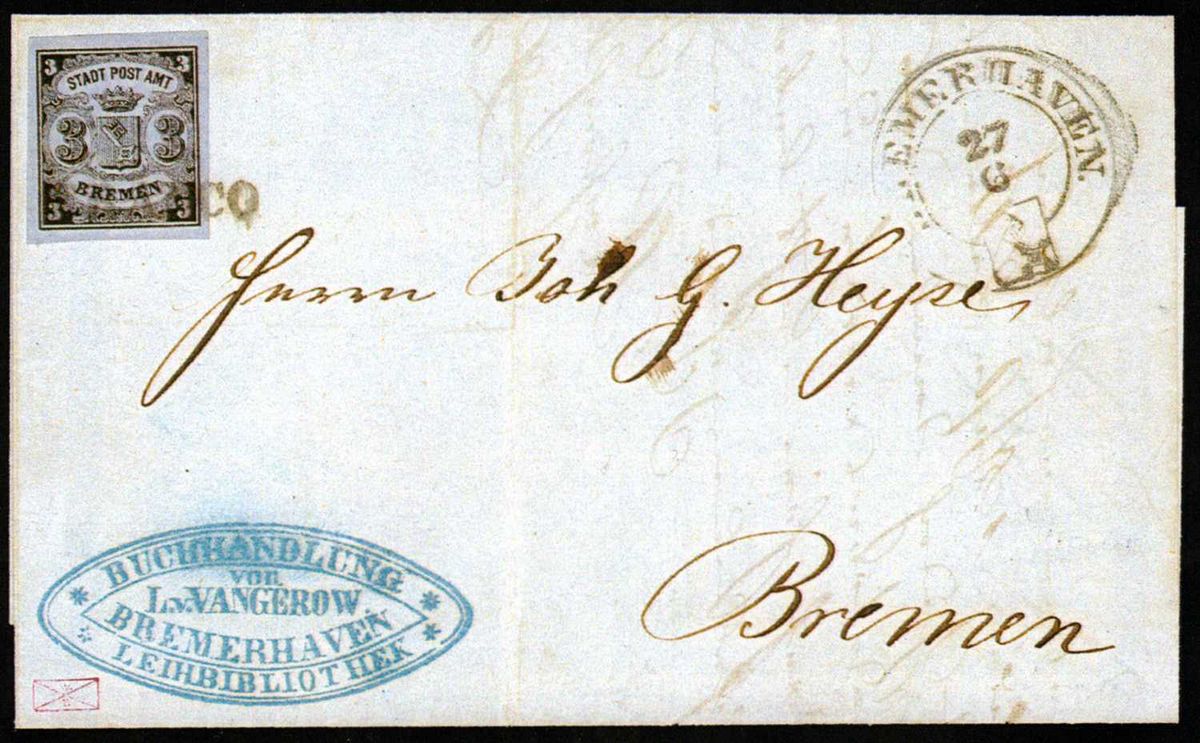 3 3
STADT POST AMT
3 3
BREMEN
3 3
CO
BREMERHAVEN.
27
Herrn Joh G. Heyse,
Bremen
BUCHHANDLUNG
VON
L.v.VANGEROW
BREMERHAVEN
LEIHBIBLIOTHEK